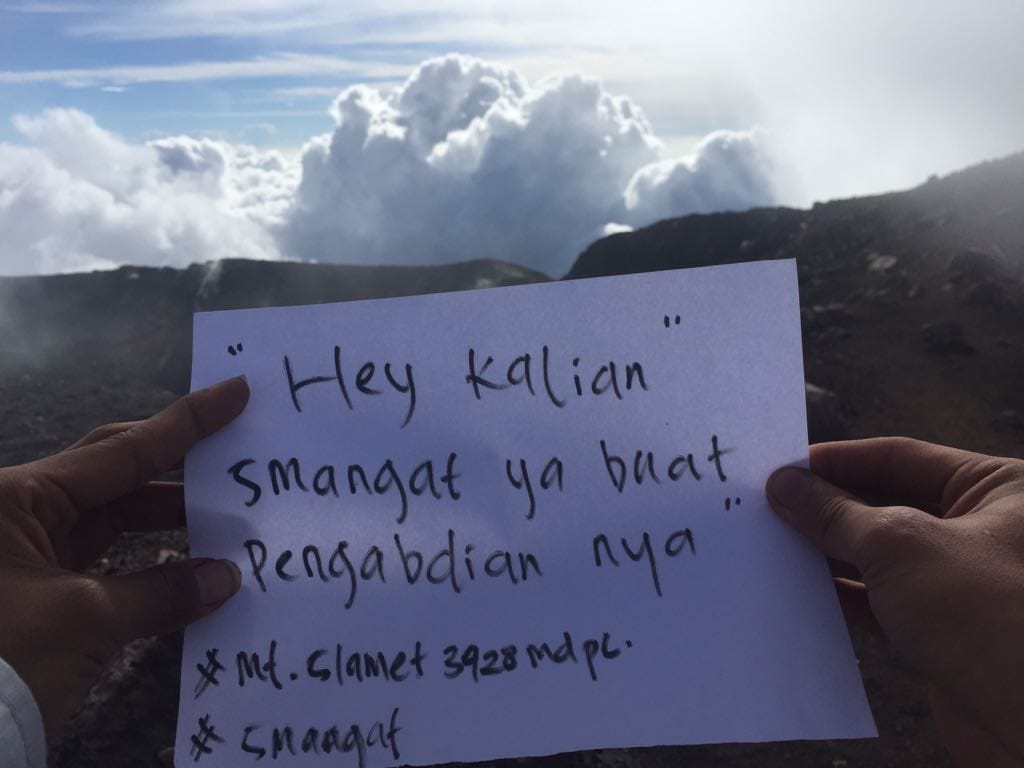 "Hey kalian"
smangat ya buat
pengabdian nya"
# Mt. Slamet 3928 mdpl.
# smangat